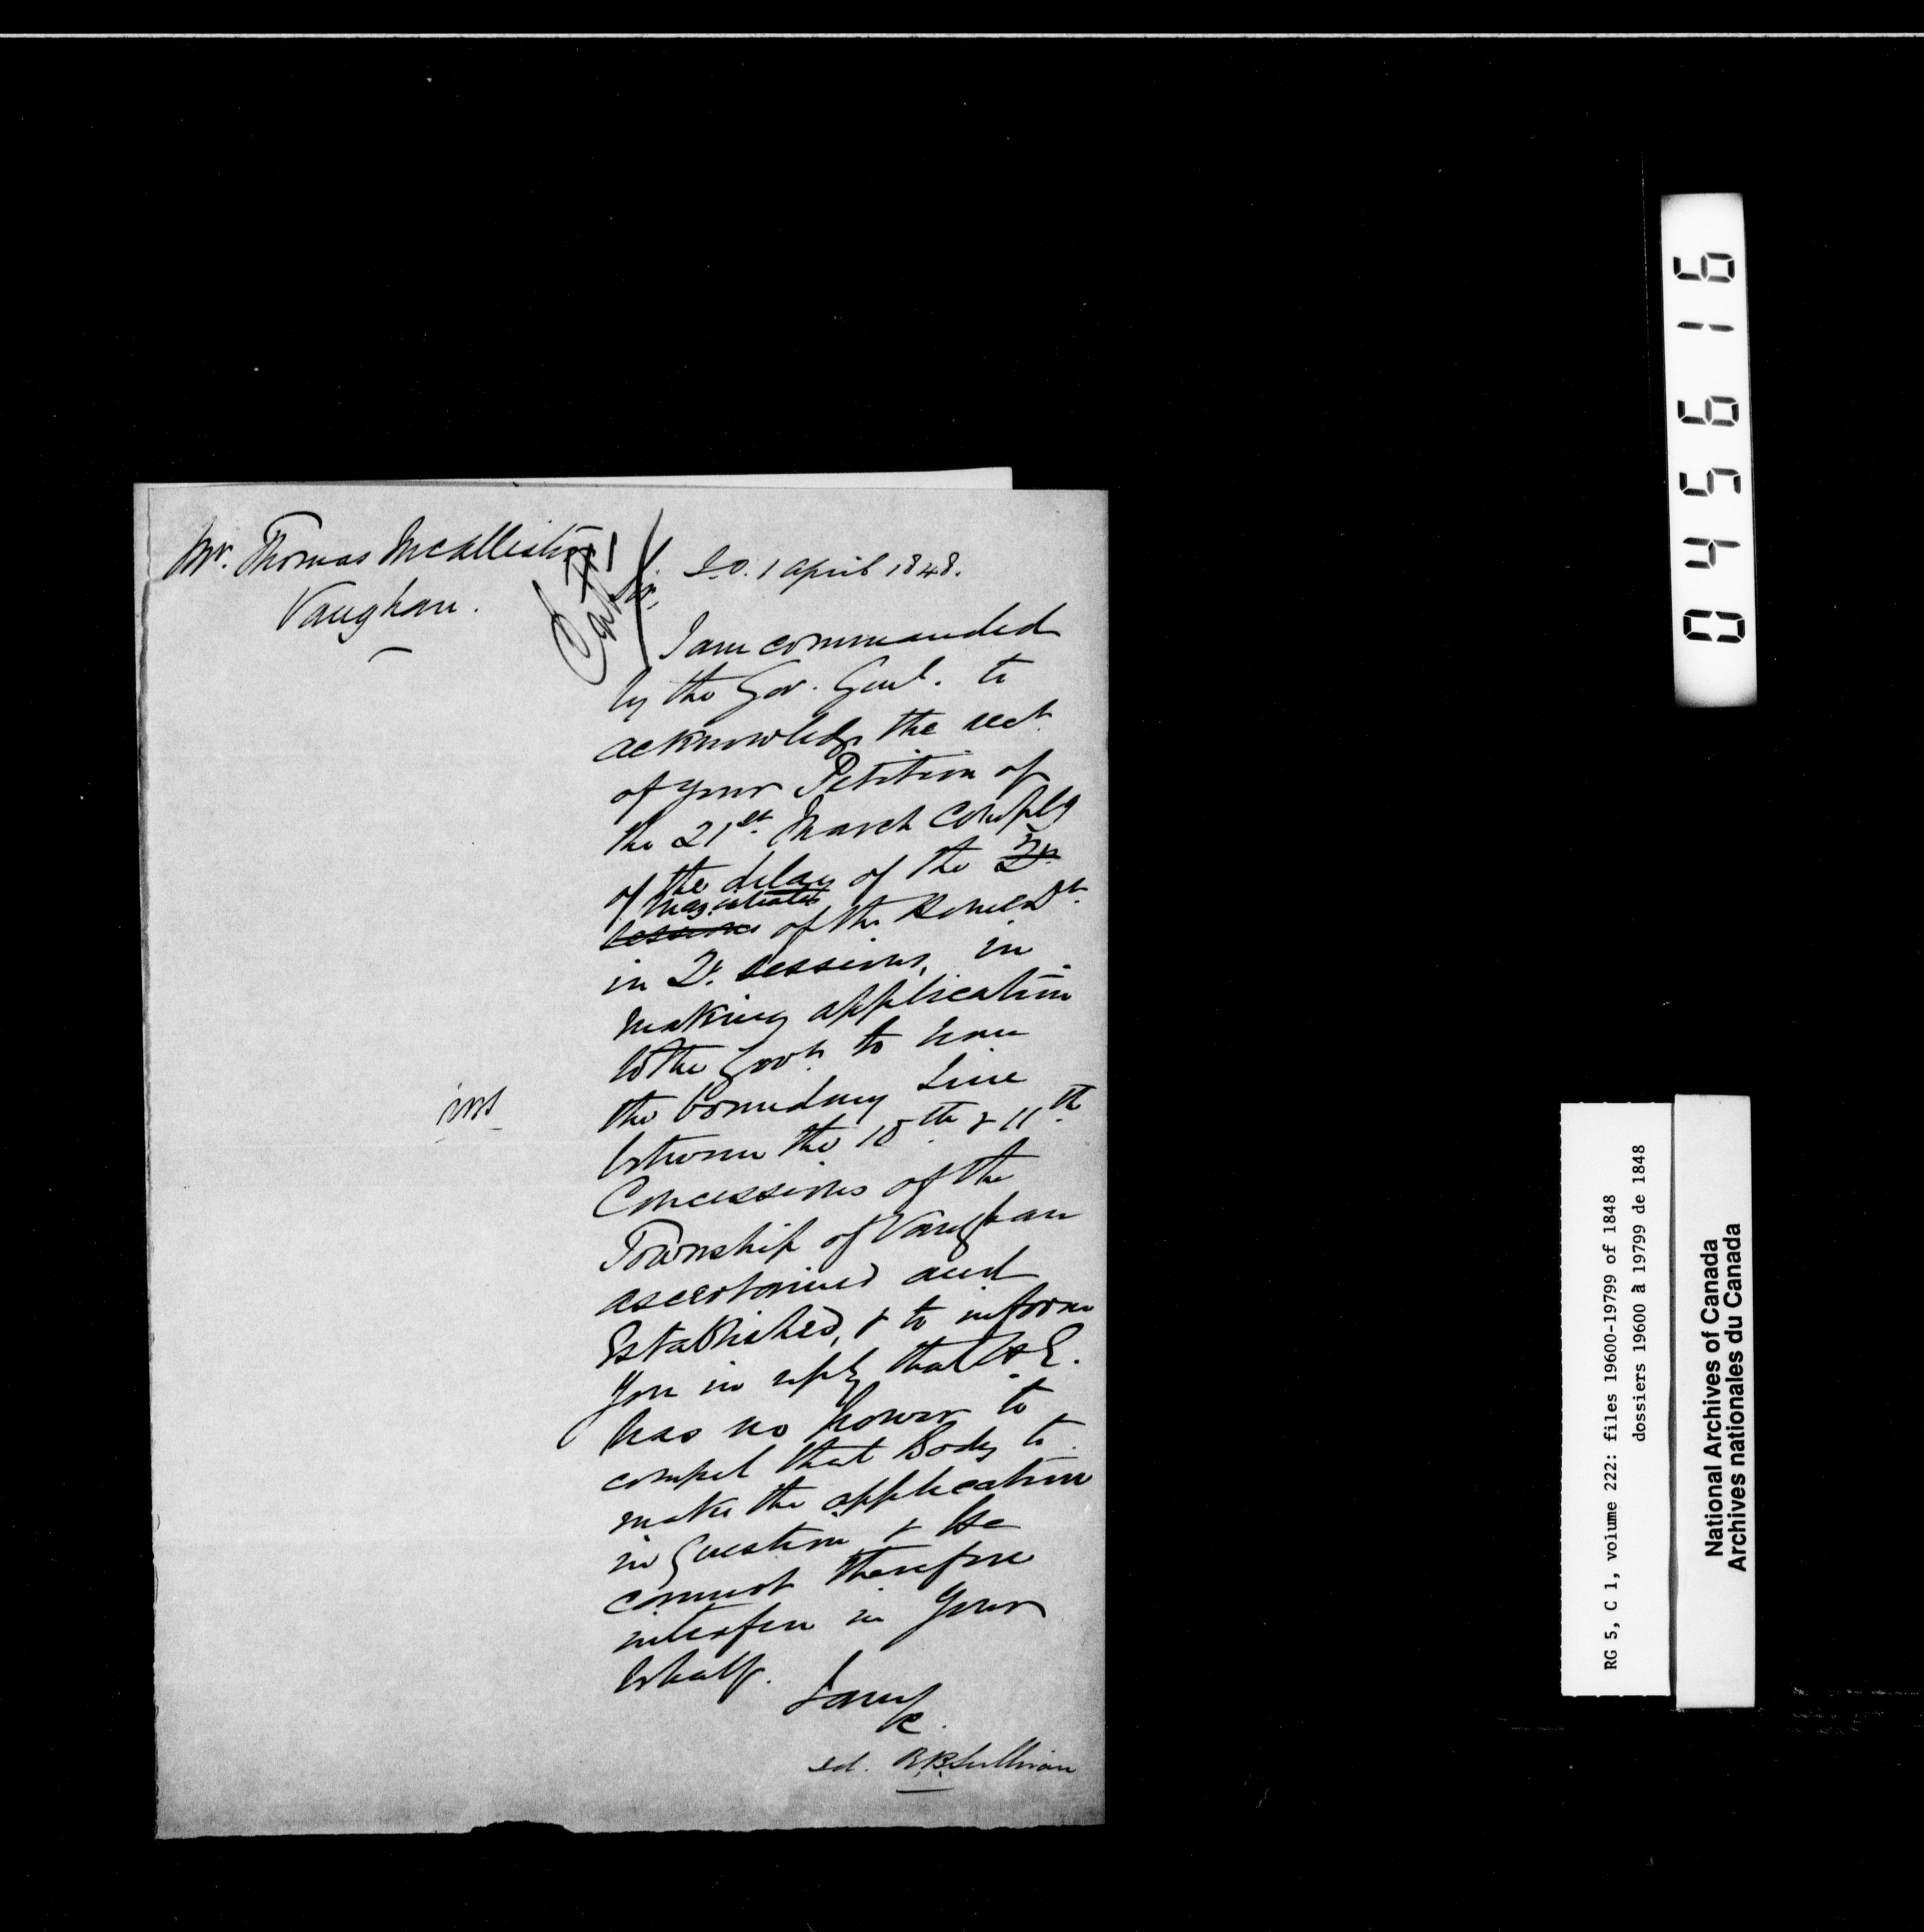 Mr. Thomas McAllister
Vaughan.
S.O. 1 April 1848.
Sir,
I am commanded
by the Gov. Genl. to
acknowledge the rect.
of your Petition of
the 21st. March Complg
of the delay of the Qr.
Magistrates
sessions of the Home Dt.
in Qr. sessions, in
making application
to the Govt. to have
the boundary Line
between the 10th & 11th
Concessions of the
Township of Vaughan
ascertained and
Established, & to inform
You in reply that H.E.
has no power to
compel that Body to
make the application
in Question & He
cannot therefore
interfere in Your
behalf.
I am
&c.
sd. R.B. Sullivan
045616
RG 5, C 1, volume 222: files 19600-19799 of 1848
dossiers 19600 à 19799 de 1848
National Archives of Canada
Archives nationales du Canada